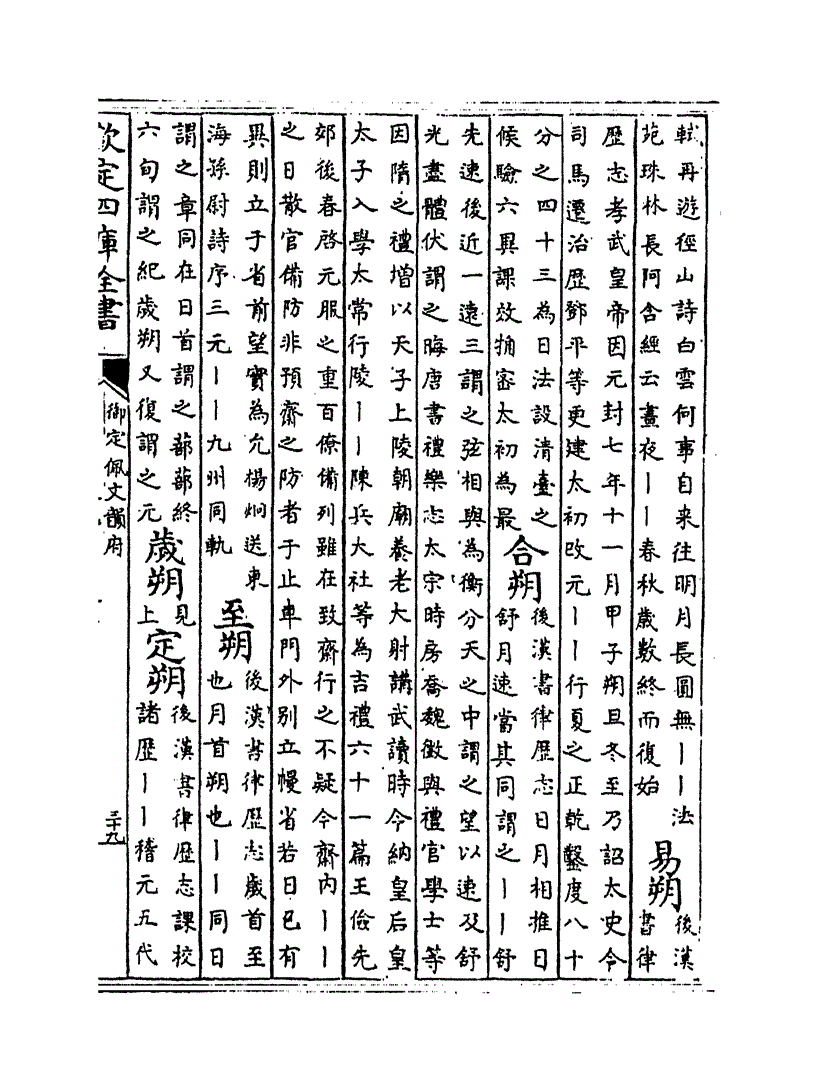 軾再遊徑山詩白雲何事自来往明月長圓無丨丨法
苑珠林長阿含經云晝夜丨丨春秋歲數終而復始
易朔
後漢
書律
歴志孝武皇帝因元封七年十一月甲子朔旦冬至乃詔太史令
司馬遷治歴鄧平等更建太初改元丨丨行夏之正乾鑿度八十
分之四十三為日法設清臺之
候驗六異課效觕密太初為最
合朔
後漢書律歴志日月相推日
舒月速當其同謂之丨丨舒
先速後近一遠三謂之弦相與為衡分天之中謂之望以速及舒
光盡體伏謂之晦唐書禮樂志太宗時房喬魏徴與禮官學士等
因隋之禮增以天子上陵朝廟養老大射講武讀時令納皇后皇
太子入學太常行陵丨丨陳兵大社等為吉禮六十一篇王儉先
郊後春啓元服之重百僚備列雖在致齋行之不疑今齋内丨丨
之日散官備防非預齋之防者于止車門外别立幔省若日已有
異則立于省前望實為允楊炯送東
海孫尉詩序三元丨丨九州同軌
至朔
後漢書律歴志歲首至
也月首朔也丨丨同日
謂之章同在日首謂之蔀蔀終
六旬謂之紀歲朔又復謂之元
歲朔
見
上
定朔
後漢書律歴志課校
諸歴丨丨稽元五代
欽定四庫全書
御定佩文韻府
三十九